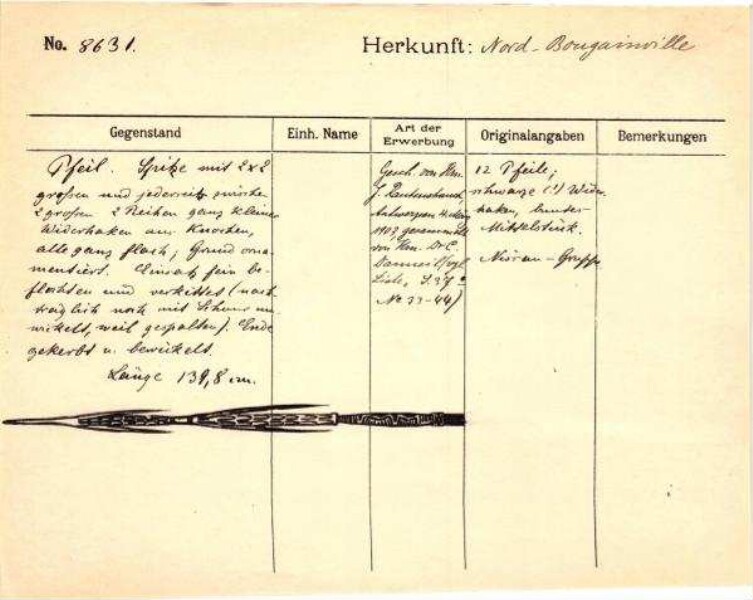 No. 8631.
Herkunft: Nord-Bougainville
Gegenstand
Einh. Name
Art der Erwerbung
Originalangaben
Bemerkungen
Pfeil. Spitze mit 2x2
großen und jederseits zwischen
2 großen 2 Reihen ganz kleine
Widerhaken aus Knochen,
alle ganz flach; Grund orna-
mentiert. Einsatz fein be-
flochten und verkittet (nach-
träglich noch mit Schnur um-
wickelt, weil gespalten). Ende
gekerbt u. bewickelt.
Länge 139,8 cm.
Gesch. von Hrn.
J. Rautenstrauch,
Antwerpen
1903 gesammelt
von Hrn. Dr. C.
Danneil (vgl.
Liste, S. 37
No 33-44)
12 Pfeile,
schwarze (!) Wider-
haken, buntes
Mittelstück.
Nissan-Gruppe